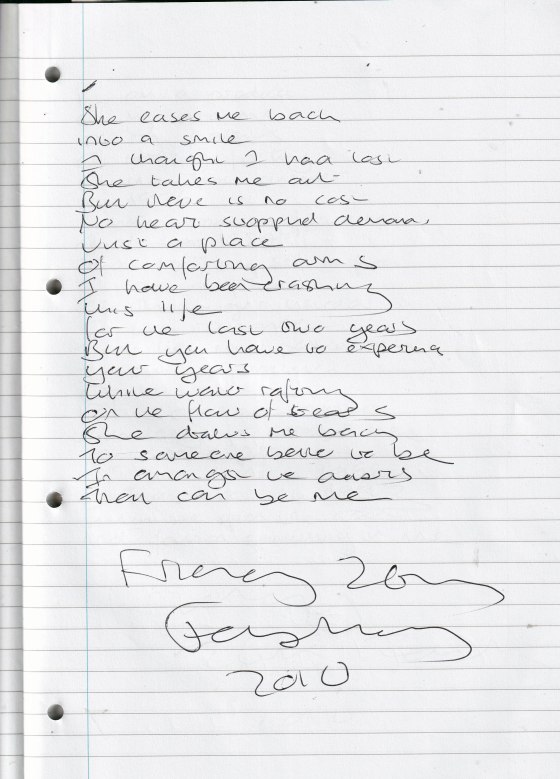 She eases me back
into a smile
I thought I had lost
She takes me out
But there is no cost
No heart stopped
Just a place
Of comforting arms
I have been
this life
for the last two years
But you have to
your years
While water rafting
on the flow of tears
She draws me back
To someone
In amongst the
that can be me
2010